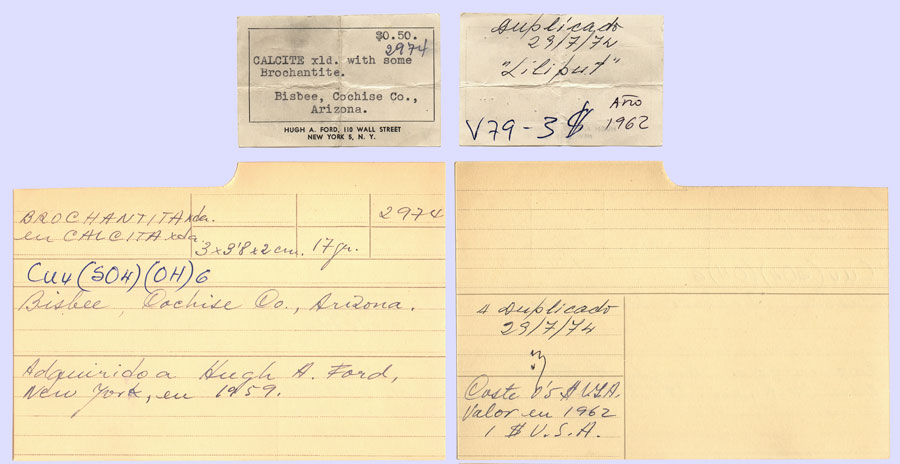 $0.50.
2974
CALCITE xld. with some
Brochantite.
Bisbee, Cochise Co.,
Arizona.
HUGH A. FORD, 110 WALL STREET
NEW YORK 5, N. Y.
Duplicado
29/7/74
"Liliput"
Año
V79-3 $ 1962
BROCHANTITA xda. 2974
en CALCITA xda
3x3'8x2cm. 17gr.
Cu4(SO4)(OH)6
Bisbee, Cochise Co., Arizona.
Adquirido a Hugh A. Ford,
New York, en 1959.
4 Duplicado
29/7/74
Coste 0'5 $ USA.
Valor en 1962
1 $ U.S.A.